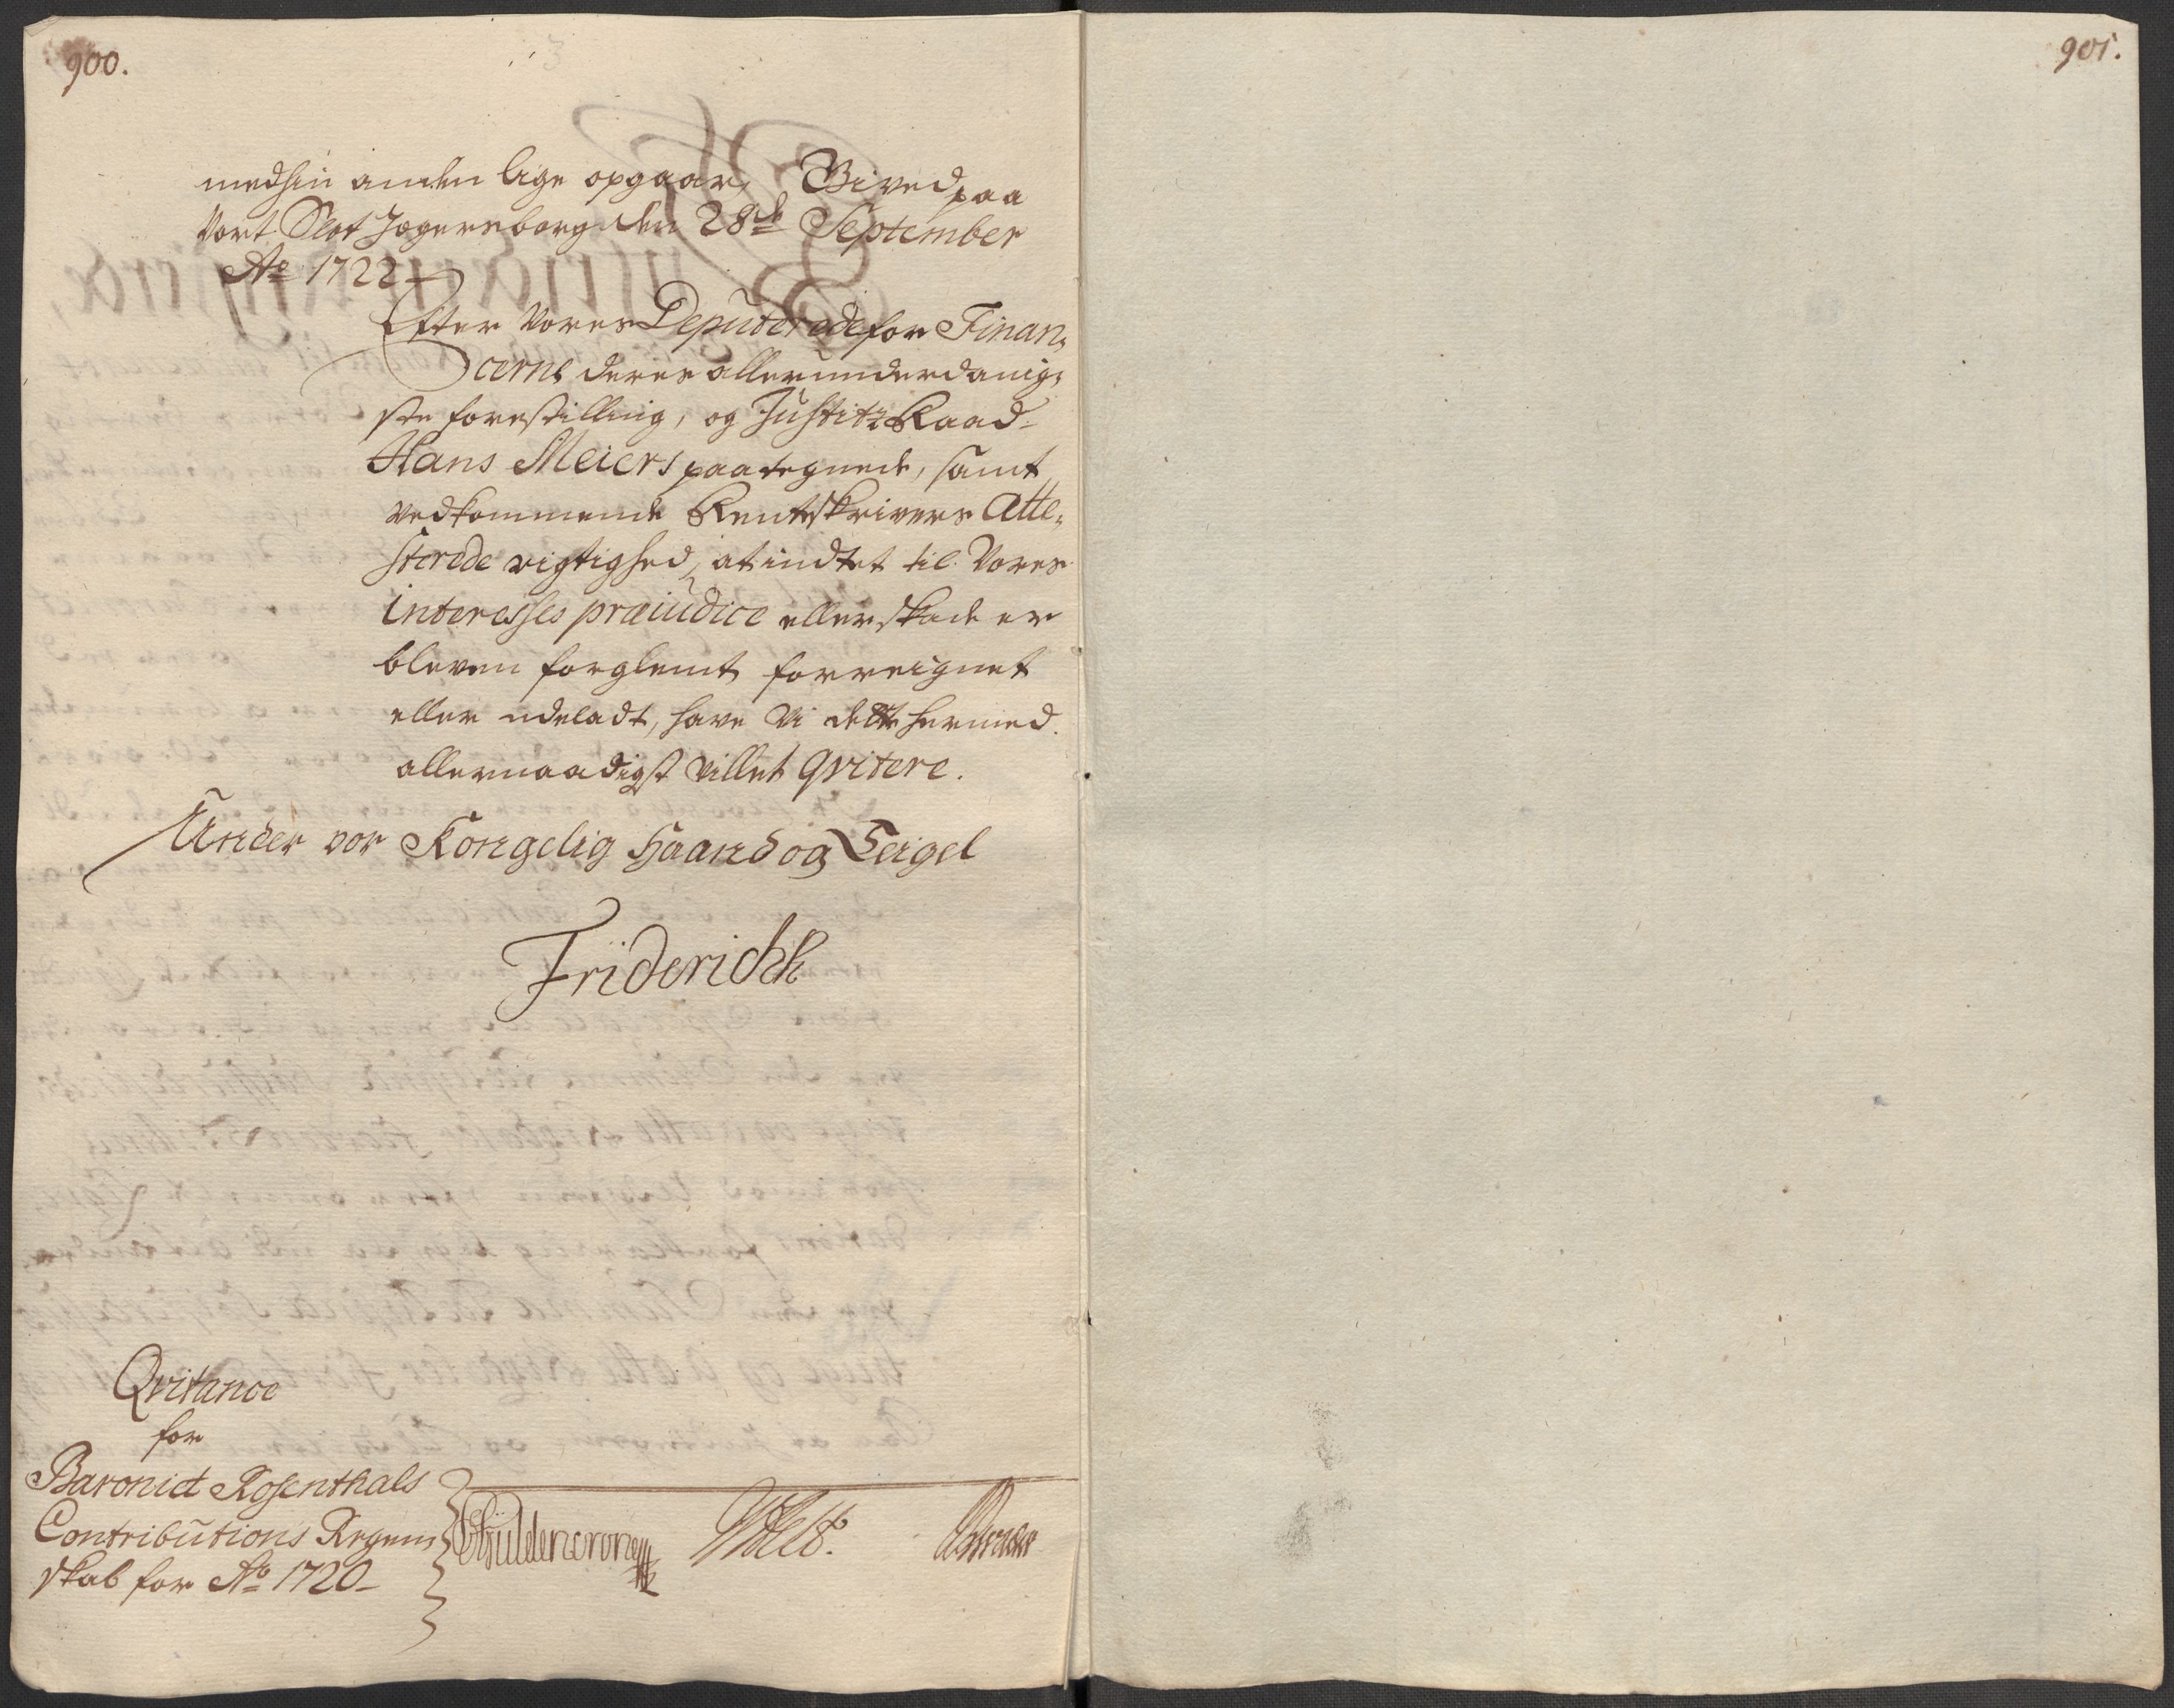 900.
901.
medhin anden lige opgaar, Givet paa
Vort Slot Jægersborg den 28de September
Ao 1722
Efter Vores Deputerede for Finan,
cerne deres allerunderdanig,
ste forestilling, og Justitz Raad
Hans Meiers paategnede, samt
vedkommende Renteskrivers Atte,
sterede rigtighed, at indtet til Vores
interesses præiudice eller skade er
bleven forglemt forreignet
eller udeladt, have Vi dette hermed
allernaadigst villet qvitere.
Under vor Kongelig Haand og Seigel
Friderichh
Qvitance
for
Baroniet Rosenthals
Contributions Regen,
skab for Ao 1720
CGüldencrone